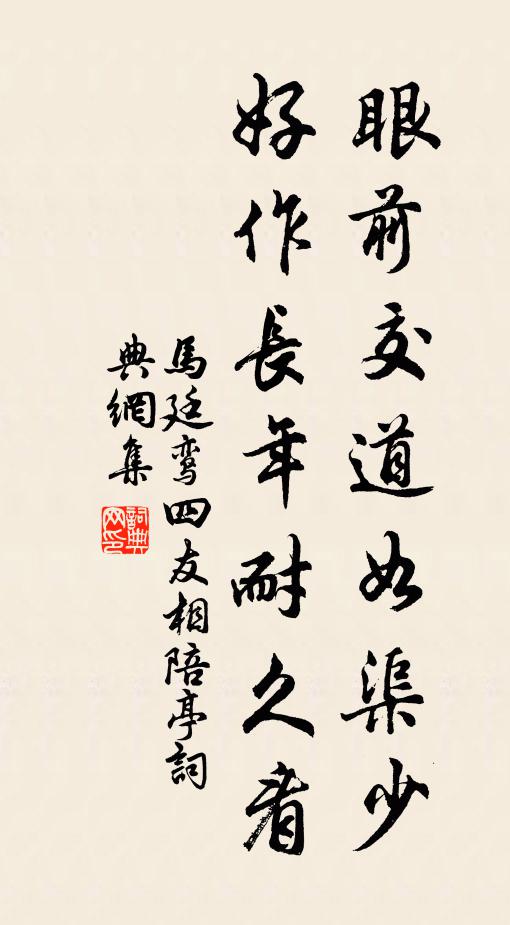 眼前交道如渠少
好作長年耐久看
馬廷鸞四友相陪亭詞
典網集
詞典
网印